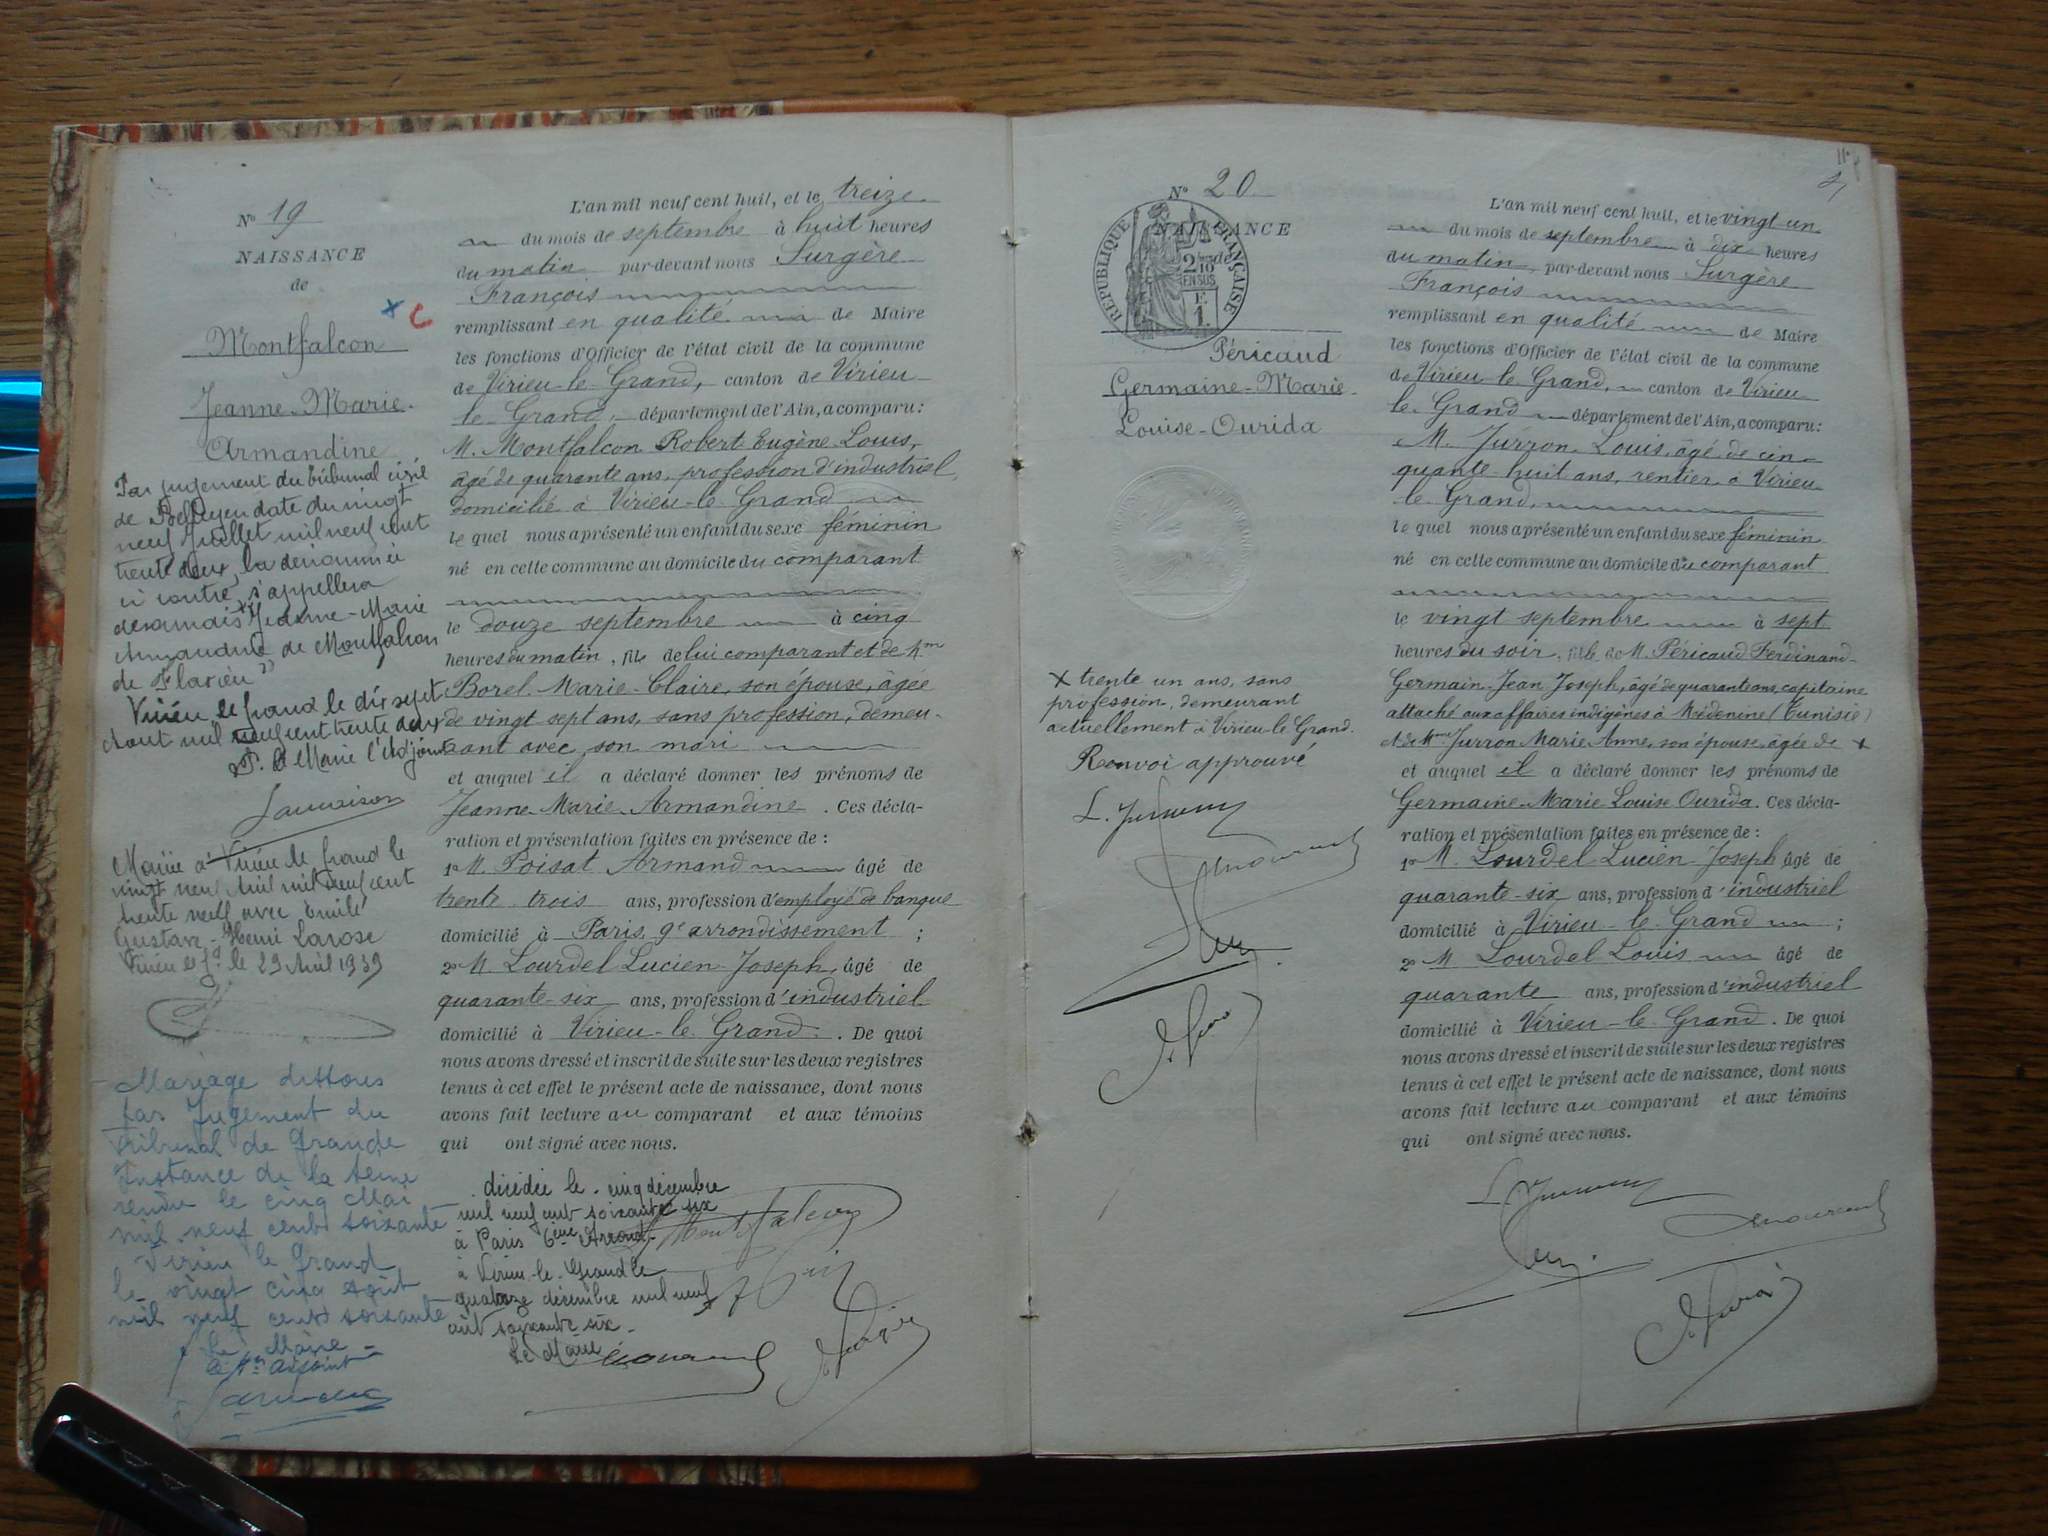 Nº 19
NAISSANCE
de
Montfalcon
Jeanne-Marie-
Armandine
Par jugement du tribunal civil
de Belley en date du vingt
neuf Juillet mil neuf cent
trente deux, la dénommée
ci contre, s'appellera
désormais "Jeanne-Marie
Armandine de Montfalcon
de Flaxieu"
Virieu le Grand le dix sept
Août mil neuf cent trente deux
P. le Maire l'Adjoint
Mariée à Virieu le Grand le
vingt neuf Avril mil neuf cent
trente neuf avec Emile
Gustave-Henri Larose
Virieu le Gd le 29 Avril 1939
Mariage dissous
par Jugement du
Tribunal de Grande
Instance de la Seine
rendu le cinq Mai
mil neuf cent soixante
Virieu le Grand
le vingt cinq août
mil neuf cent soixante
Le Maire
Le 1er adjoint
L'an mil neuf cent huit, et le treize
du mois de septembre à huit heures
du matin par-devant nous Surgère
François
remplissant en qualité de Maire
les fonctions d'Officier de l'état civil de la commune
de Virieu-le-Grand, canton de Virieu-
le-Grand, département de l'Ain, a comparu :
M. Montfalcon Robert-Eugène-Louis,
âgé de quarante ans, profession d'industriel,
domicilié à Virieu-le-Grand
lequel nous a présenté un enfant du sexe féminin
né en cette commune au domicile du comparant
le douze septembre à cinq
heures du matin, fille de lui comparant et de Mme
Borel Marie-Claire, son épouse, âgée
de vingt sept ans, sans profession, demeu-
rant avec son mari
et auquel il a déclaré donner les prénoms de
Jeanne-Marie-Armandine. Ces décla-
ration et présentation faites en présence de :
1º M. Poisat Armand âgé de
trente-trois ans, profession d'employé de banque
domicilié à Paris, 9e arrondissement ;
2º M. Lourdel Lucien-Joseph, âgé de
quarante-six ans, profession d'industriel
domicilié à Virieu-le-Grand. De quoi
nous avons dressé et inscrit de suite sur les deux registres
tenus à cet effet le présent acte de naissance, dont nous
avons fait lecture au comparant et aux témoins
qui ont signé avec nous.
décédée le cinq décembre
mil neuf cent soixante six
à Paris 6ème Arrond.
à Virieu-le-Grand le
quatorze décembre mil neuf
cent soixante six.
Le Maire
R Montfalcon
Nº 20
NAISSANCE
de
REPUBLIQUE FRANÇAISE
2/10
EN SUS
E.
1.
Péricaud
Germaine-Marie-
Louise-Ourida
x trente un ans, sans
profession, demeurant
actuellement à Virieu-le-Grand.
Renvoi approuvé
L. Jurron
L'an mil neuf cent huit, et le vingt un
du mois de septembre à dix heures
du matin, par-devant nous Surgère
François
remplissant en qualité de Maire
les fonctions d'Officier de l'état civil de la commune
de Virieu-le-Grand, canton de Virieu-
le-Grand département de l'Ain, a comparu :
M. Jurron Louis, âgé de cin-
quante-huit ans, rentier à Virieu-
le-Grand,
lequel nous a présenté un enfant du sexe féminin
né en cette commune au domicile du comparant
le vingt septembre à sept
heures du soir, fille de M. Péricaud Ferdinand-
Germain-Jean-Joseph, âgé de quarante ans, capitaine
attaché aux affaires indigènes à Médenine (Tunisie)
et de Mme Jurron Marie-Anne, son épouse, âgée de x
et auquel il a déclaré donner les prénoms de
Germaine-Marie-Louise-Ourida. Ces décla-
ration et présentation faites en présence de :
1º M. Lourdel Lucien-Joseph âgé de
quarante-six ans, profession d'industriel
domicilié à Virieu-le-Grand ;
2º M Lourdel Louis âgé de
quarante ans, profession d'industriel
domicilié à Virieu-le-Grand. De quoi
nous avons dressé et inscrit de suite sur les deux registres
tenus à cet effet le présent acte de naissance, dont nous
avons fait lecture au comparant et aux témoins
qui ont signé avec nous.
L. Jurron